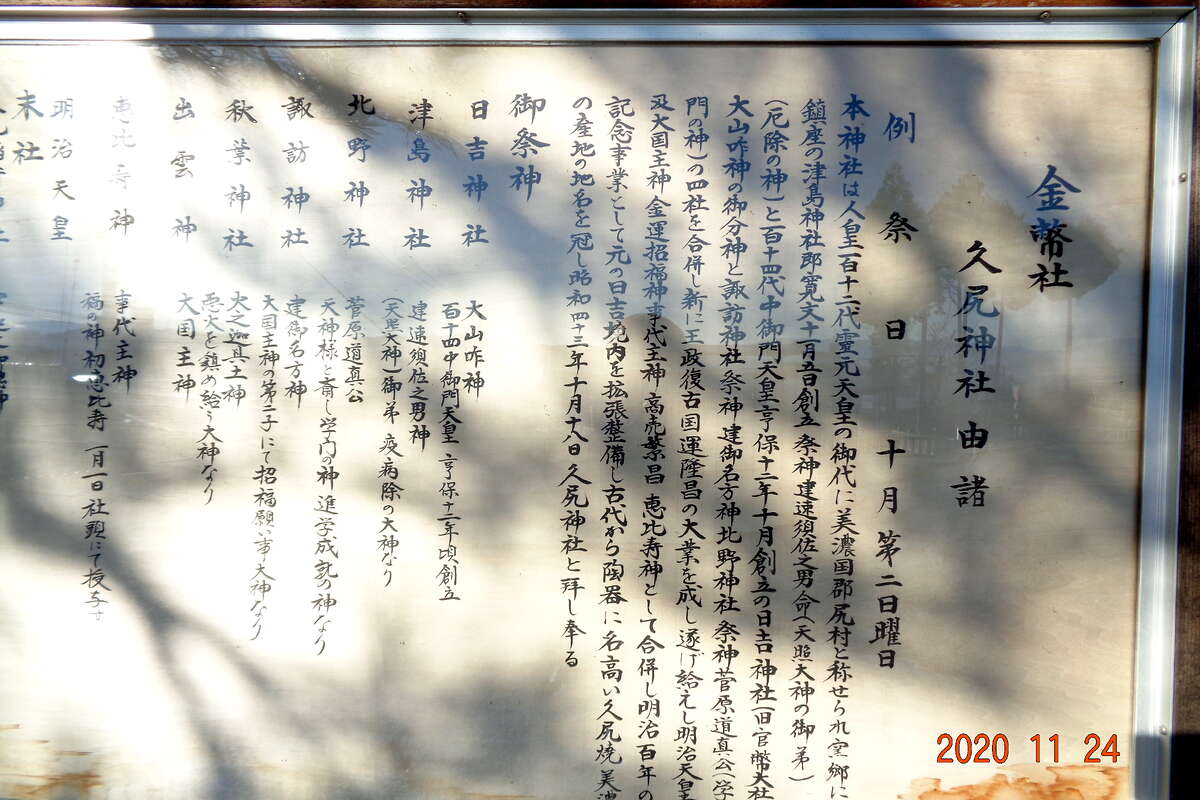 金幣社
久尻神社由諸
例祭日 十月第二日曜日
本神社は人皇百十二代霊元天皇の御代に美濃国郡尻村と称せられ室郷に
鎮座の津島神社即寛文十一月五日創立 祭神建速須佐之男命(天照大神の御弟)
(厄除の神)と百十四代中御門天皇亨保十二年十月創立の日吉神社(旧官幣大社
大山咋神の御分神と諏訪神社祭神建御名方神北野神社祭神菅原道真公(学
門の神)の四社を合併し新に王政復古国運隆昌の大業を成し遂げ給えし明治天皇
及大国主神 金運招福神事代主神 商売繁昌 恵比寿神として合併し明治百年の
記念事業として元の日吉境内を拡張整備し古代から陶器に名高い久尻焼 美濃
の産地の地名を冠し昭和四十三年十月十八日久尻神社と拝し奉る
御祭神
日吉神社 大山咋神
百十四中御門天皇 亨保十二年頃創立
津島神社 建速須佐之男神
(天照大神)御弟 疫病除の大神なり
北野神社 菅原道真公
天神様と斎し学門の神 進学成就の神なり
諏訪神社 建御名方神
大国主神の第二子にて招福願い事大神なり
秋葉神社 火之迦具土神
悪火を鎮め給う大神なり
出雲神 大国主神
恵比寿神 事代主神
福の神 初恵比寿 一月一日 社頭にて授与す
明治天皇
末社